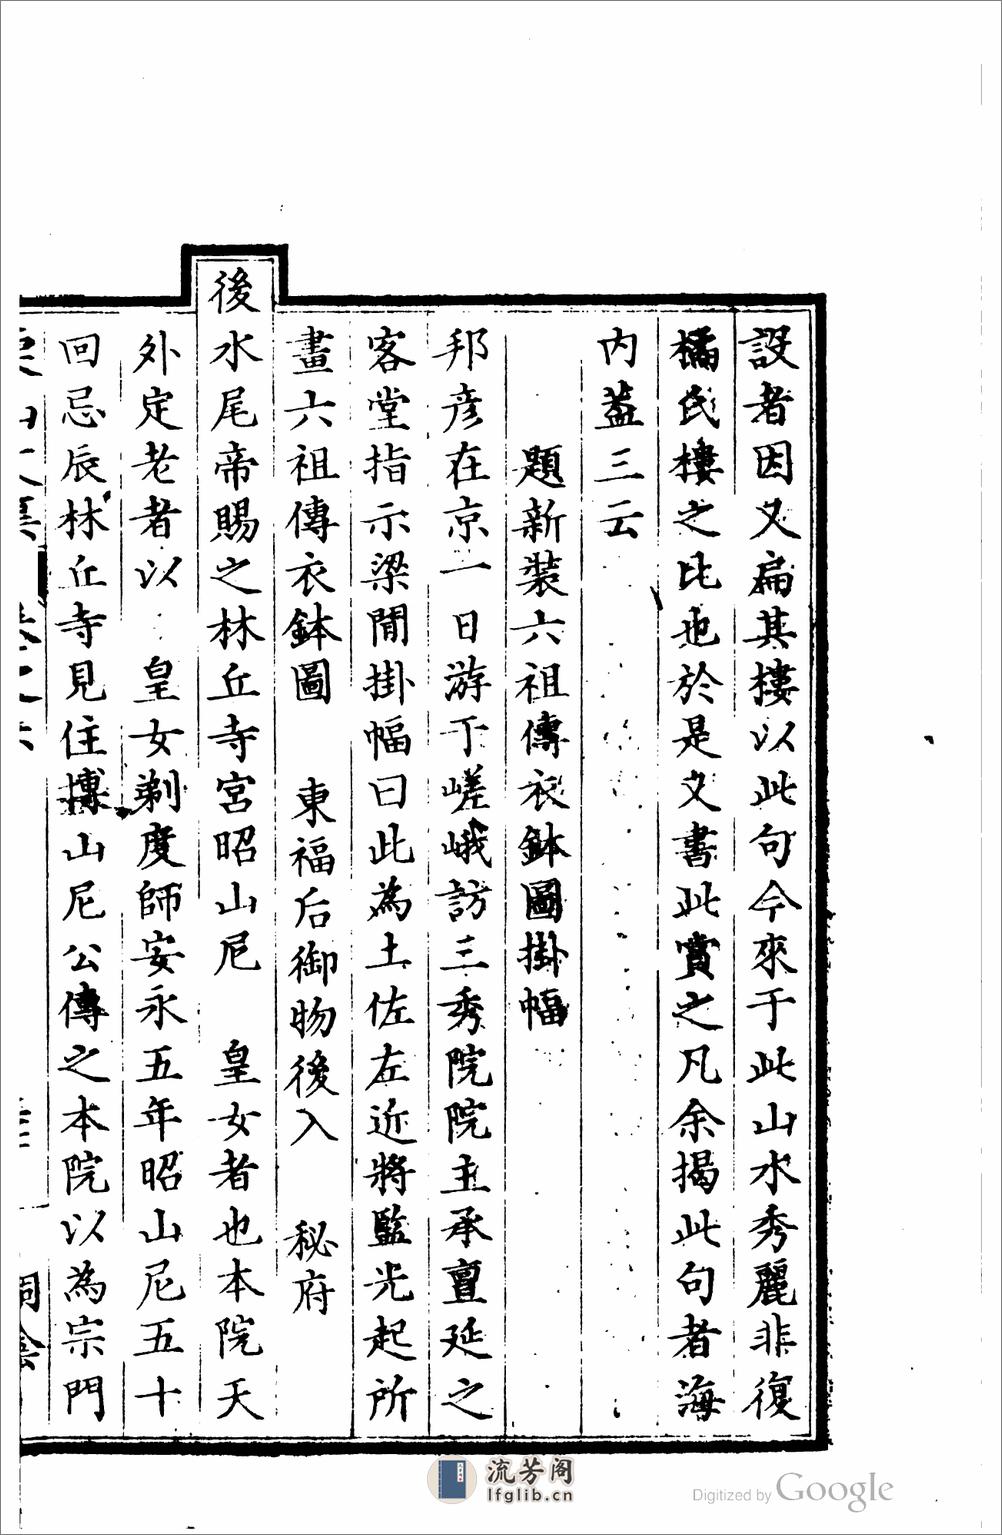 設者因又扁其樓以此句今來于此山水秀麗非復
橘氏樓之比也於是又書此賞之凡余揭此句者海
内蓋三云
題新裝六祖傳衣鉢圖掛幅
邦彦在京一日游于嵯峨訪三秀院院主承亶延之
客堂指示梁間掛幅曰此為土佐左近將監光起所
畫六祖傳衣鉢圖 東福后御物後入 秘府
後水尾帝賜之林丘寺宮昭山尼 皇女者也本院天
外定老者以 皇女剃度師安永五年昭山尼五十
回忌辰林丘寺見住摶山尼公傳之本院以為宗門
流芳阁
lfglib.cn
Digitized by Google